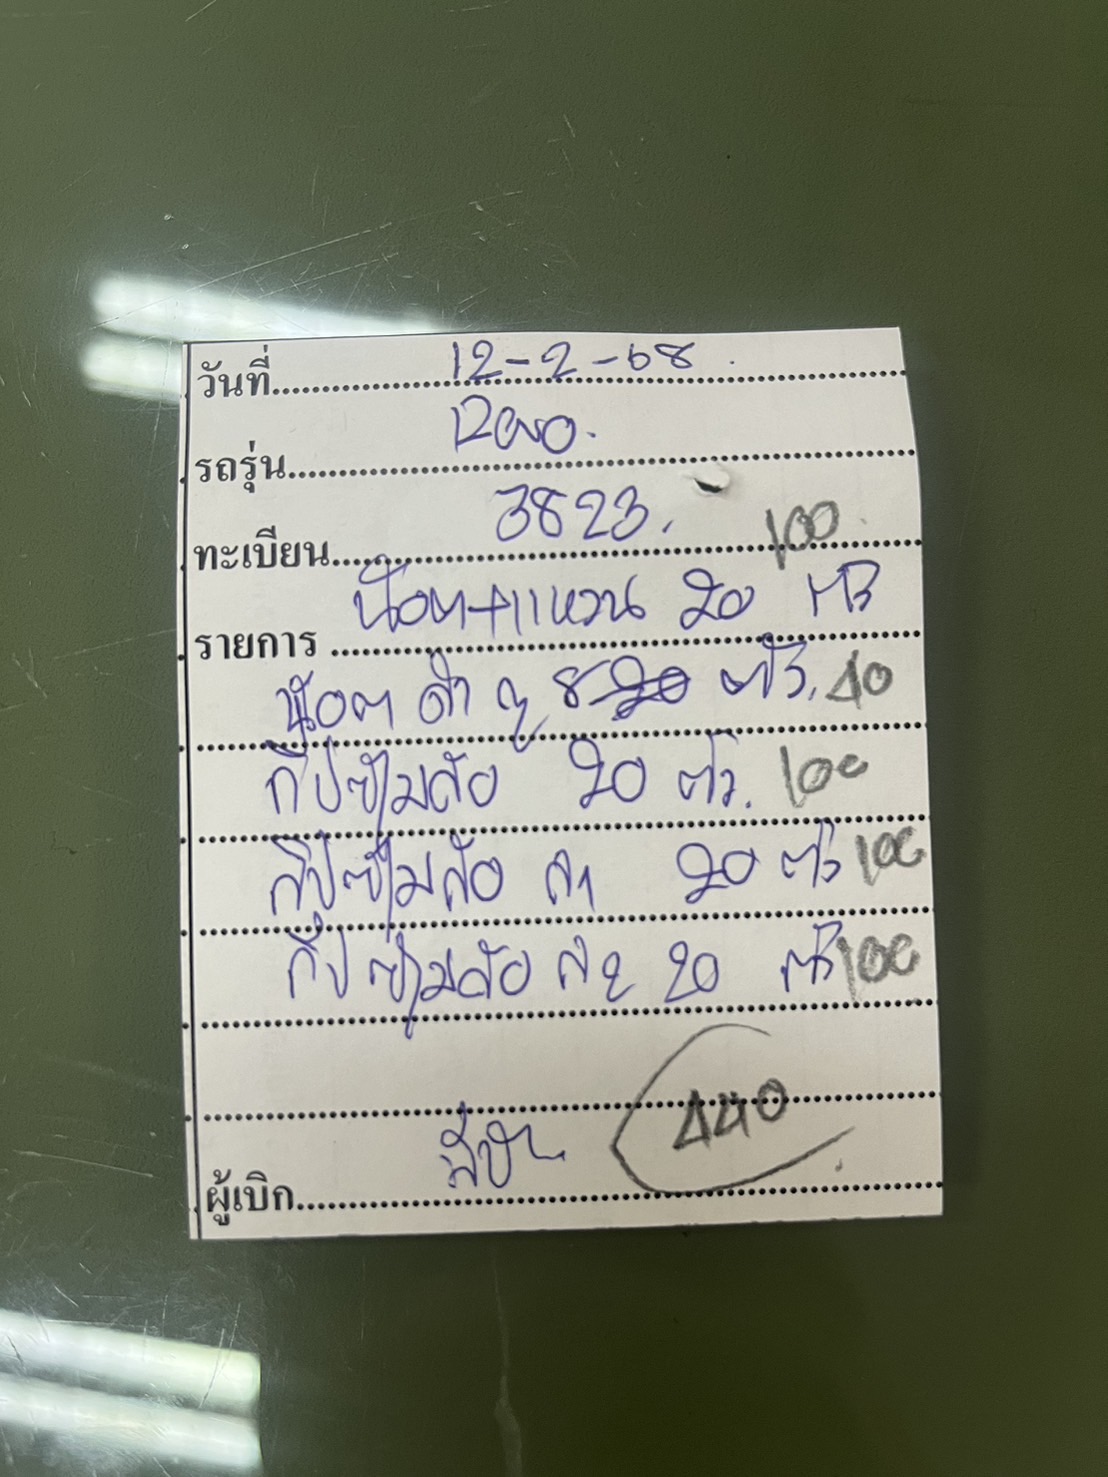 วันที่ 12-2-68
รถรุ่น
ทะเบียน 3823. 100
รายการ น้อต+แหวน 20 ตัว
น้อต ดำ 8 ตัว. 40
กิ๊ปซุ้มล้อ 20 ตัว. 100
กิ๊ปซุ้มล้อ 20 ตัว 100
กิ๊ปซุ้มล้อ 20 ตัว 100
440
ผู้เบิก